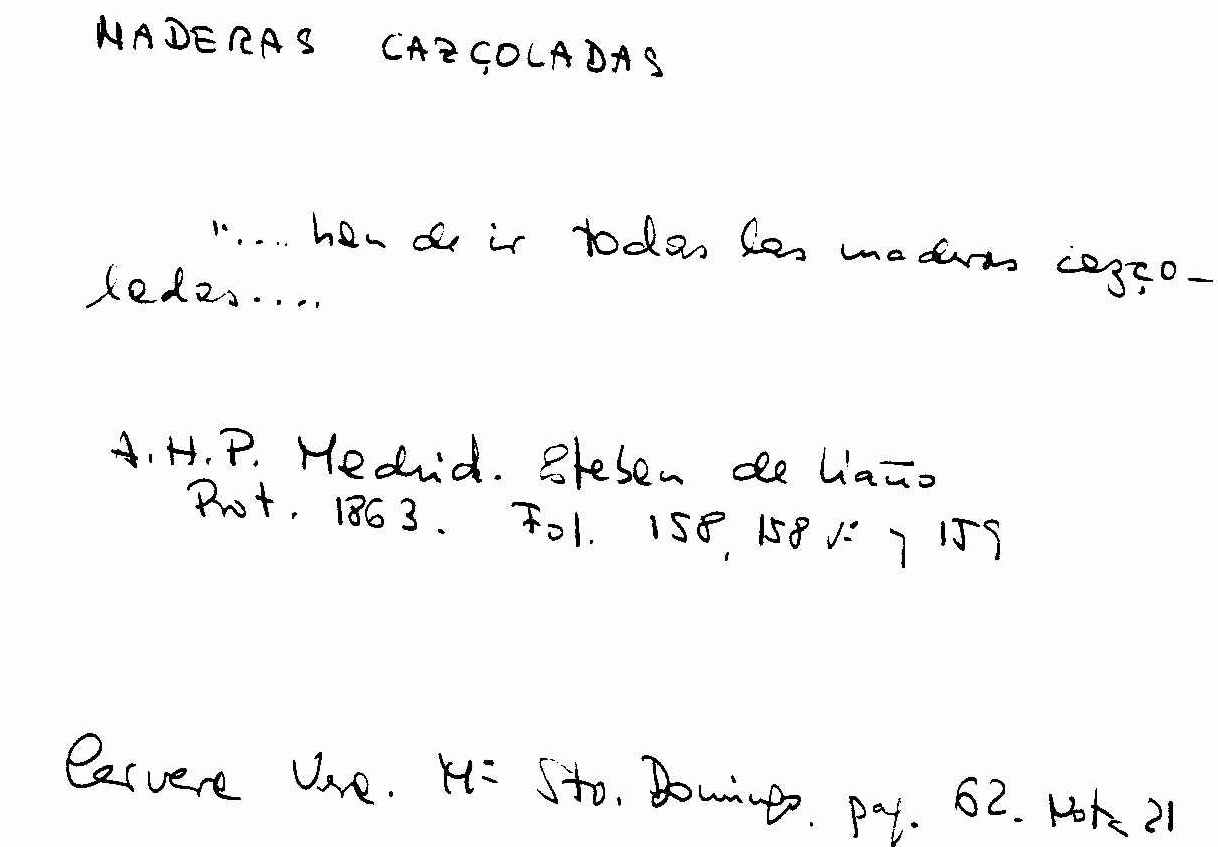 MADERAS CAZÇOLADAS
".... han de ir todas las maderas cazço-
ladas....
A.H.P. Madrid. Esteban de Liaño
Prot. 1863. Fol. 158, 158 vº y 159
Cervera Vera. Mº Sto. Domingo. pag. 62. Nota 21